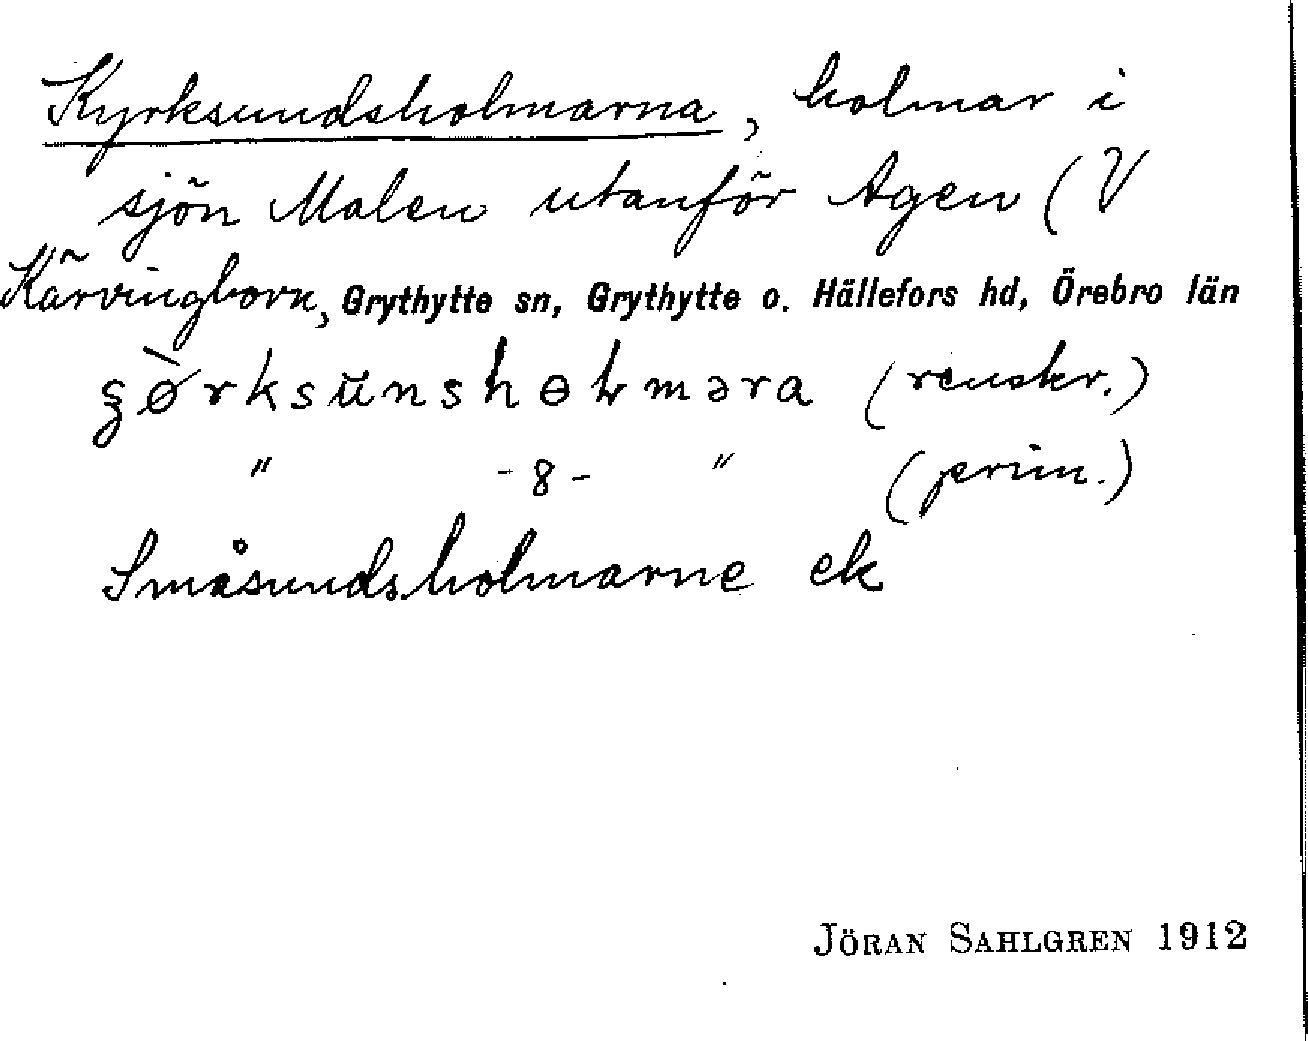 Kyrksundsholmarna, holmar i
sjön Malen utanför Agen (V
Kärvingborn, Grythytte sn, Grythytte o. Hällefors hd, Örebro län
ʂø̀rksŭnshɵɫməra (renskr.)
" -8- " (prim.)
Småsundsholmarne ek
JÖRAN SAHLGREN 1912